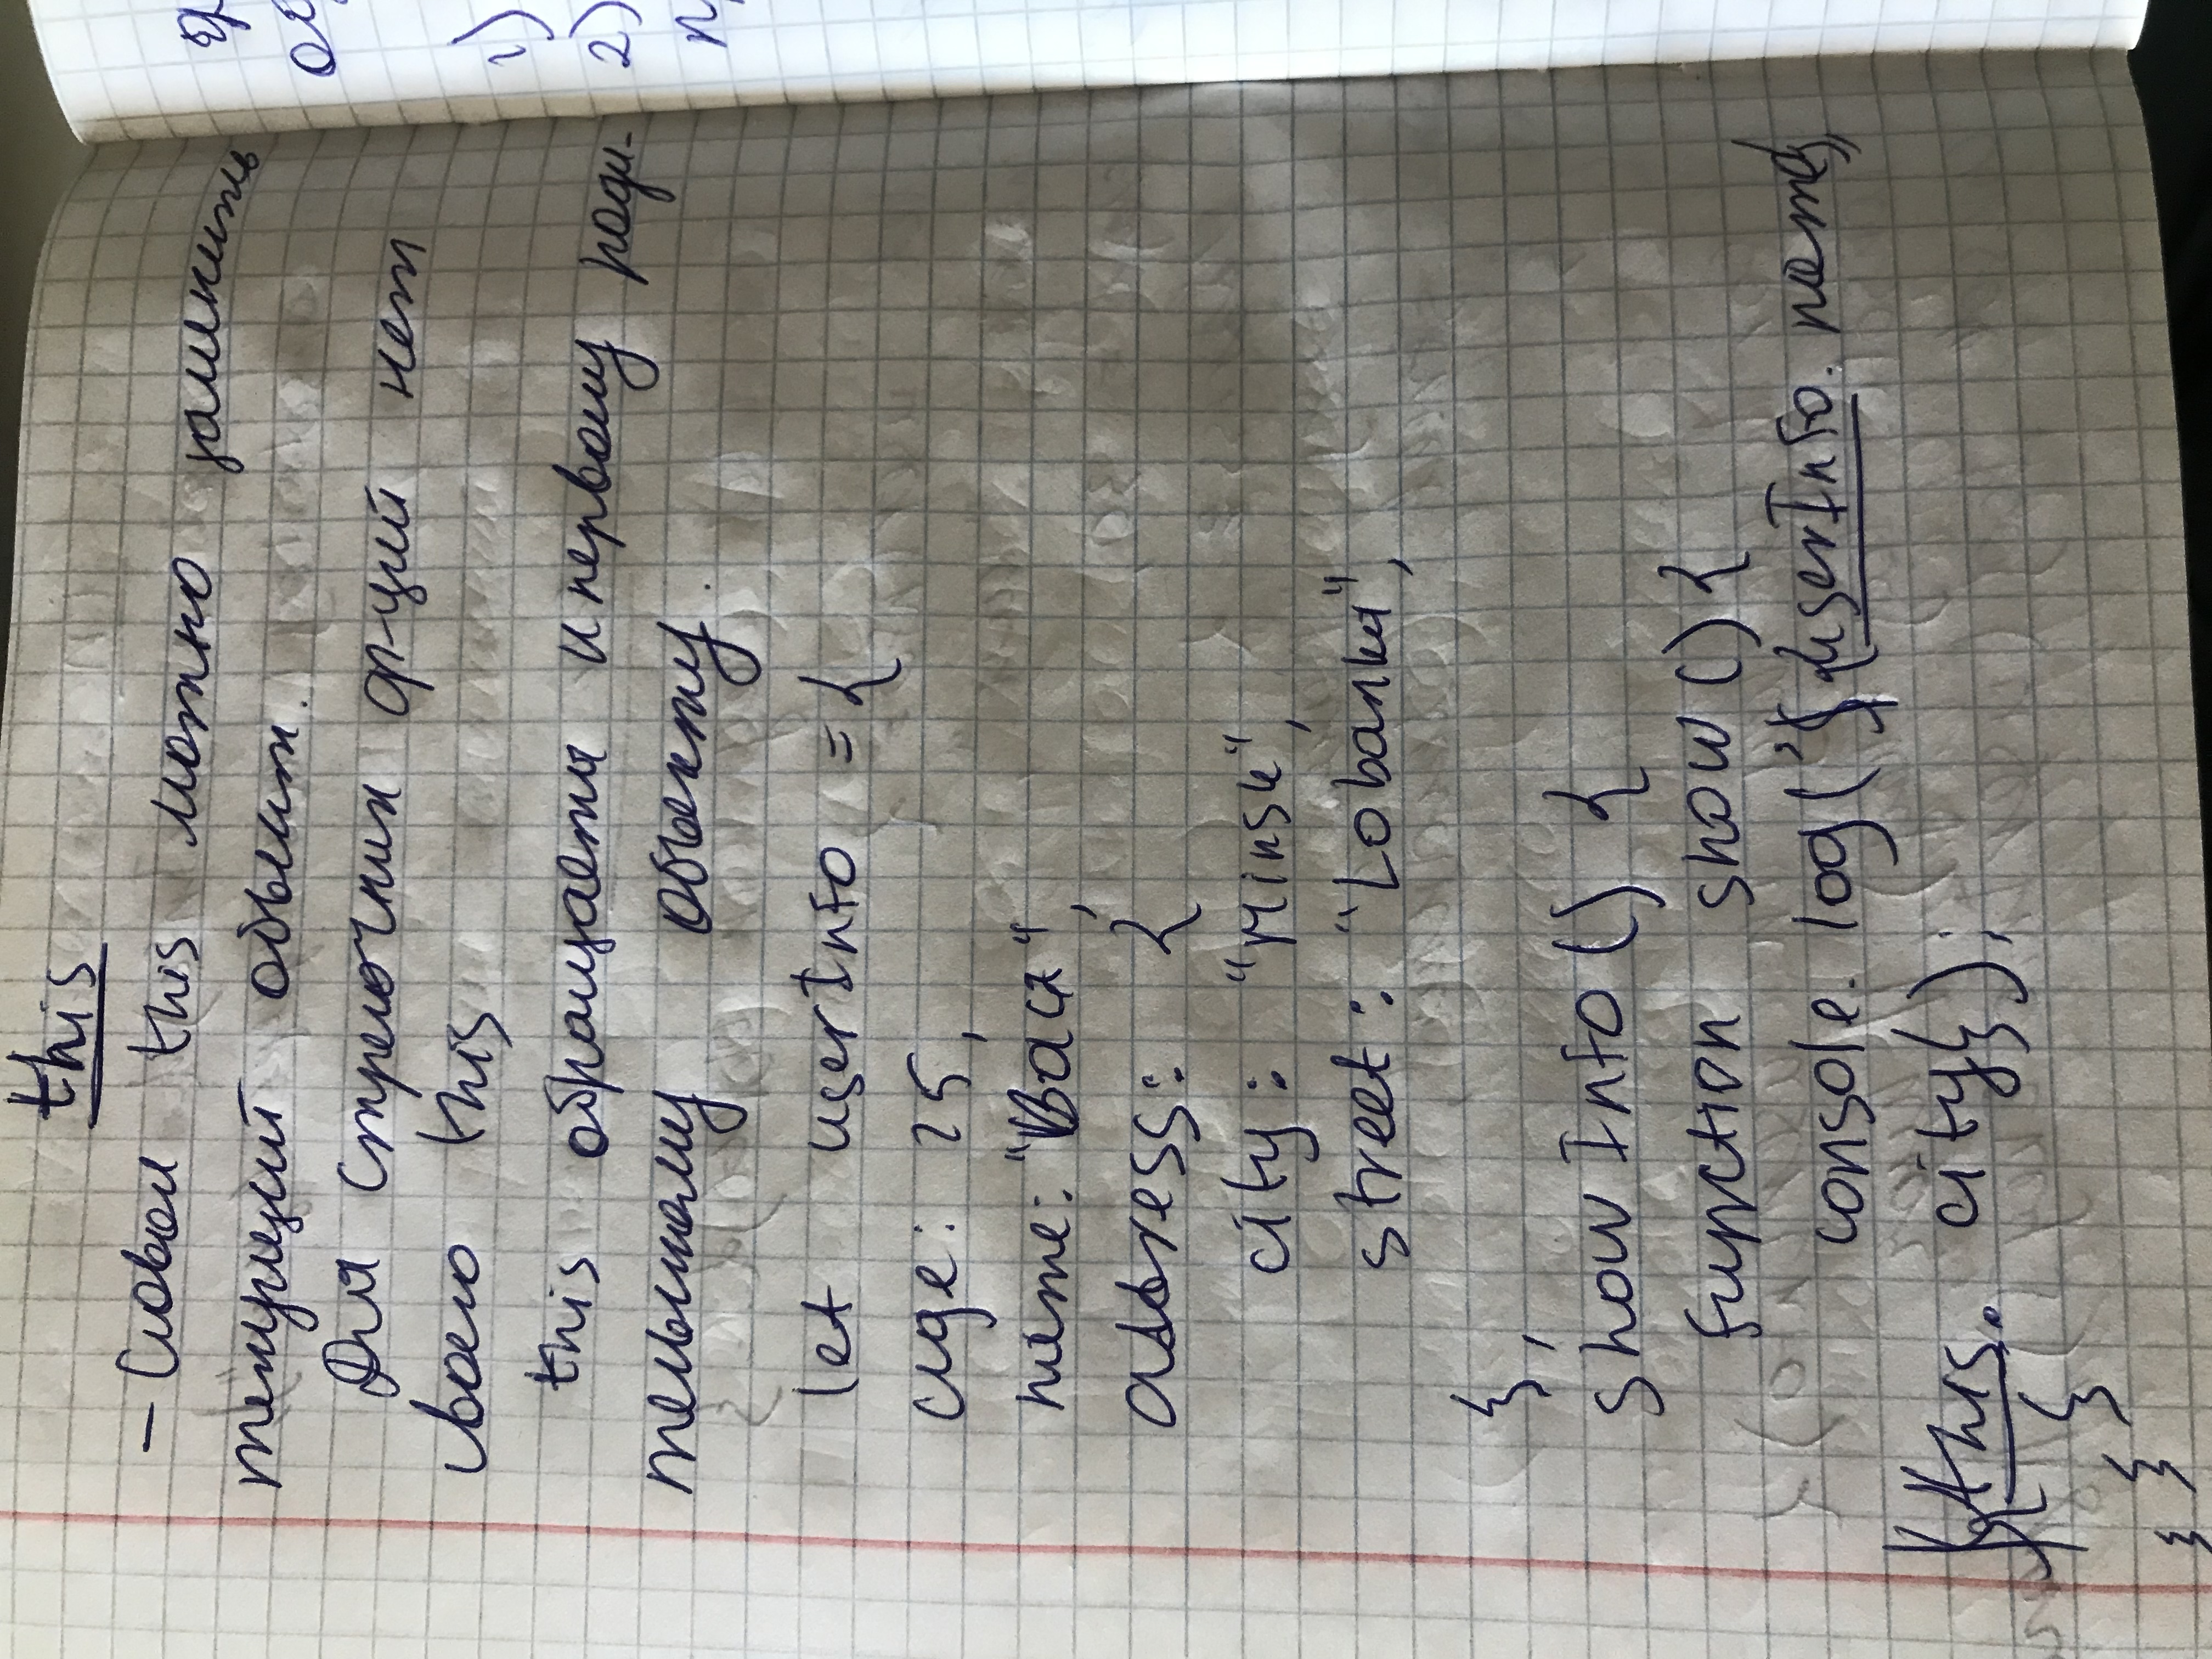 this
- Словом this можно заменить
текущий объект.
Для стрелочних ф-ций нет
своего this
this обращается к первому роди-
тельскому объекту.
let userInfo = {
age: 25,
name: "Вася",
address: {
city: "Minsk",
street: "Lobanka",
},
showInfo() {
function show() {
console.log(`${userInfo.name},
${this.city}`);
}
}
}
1)
2)